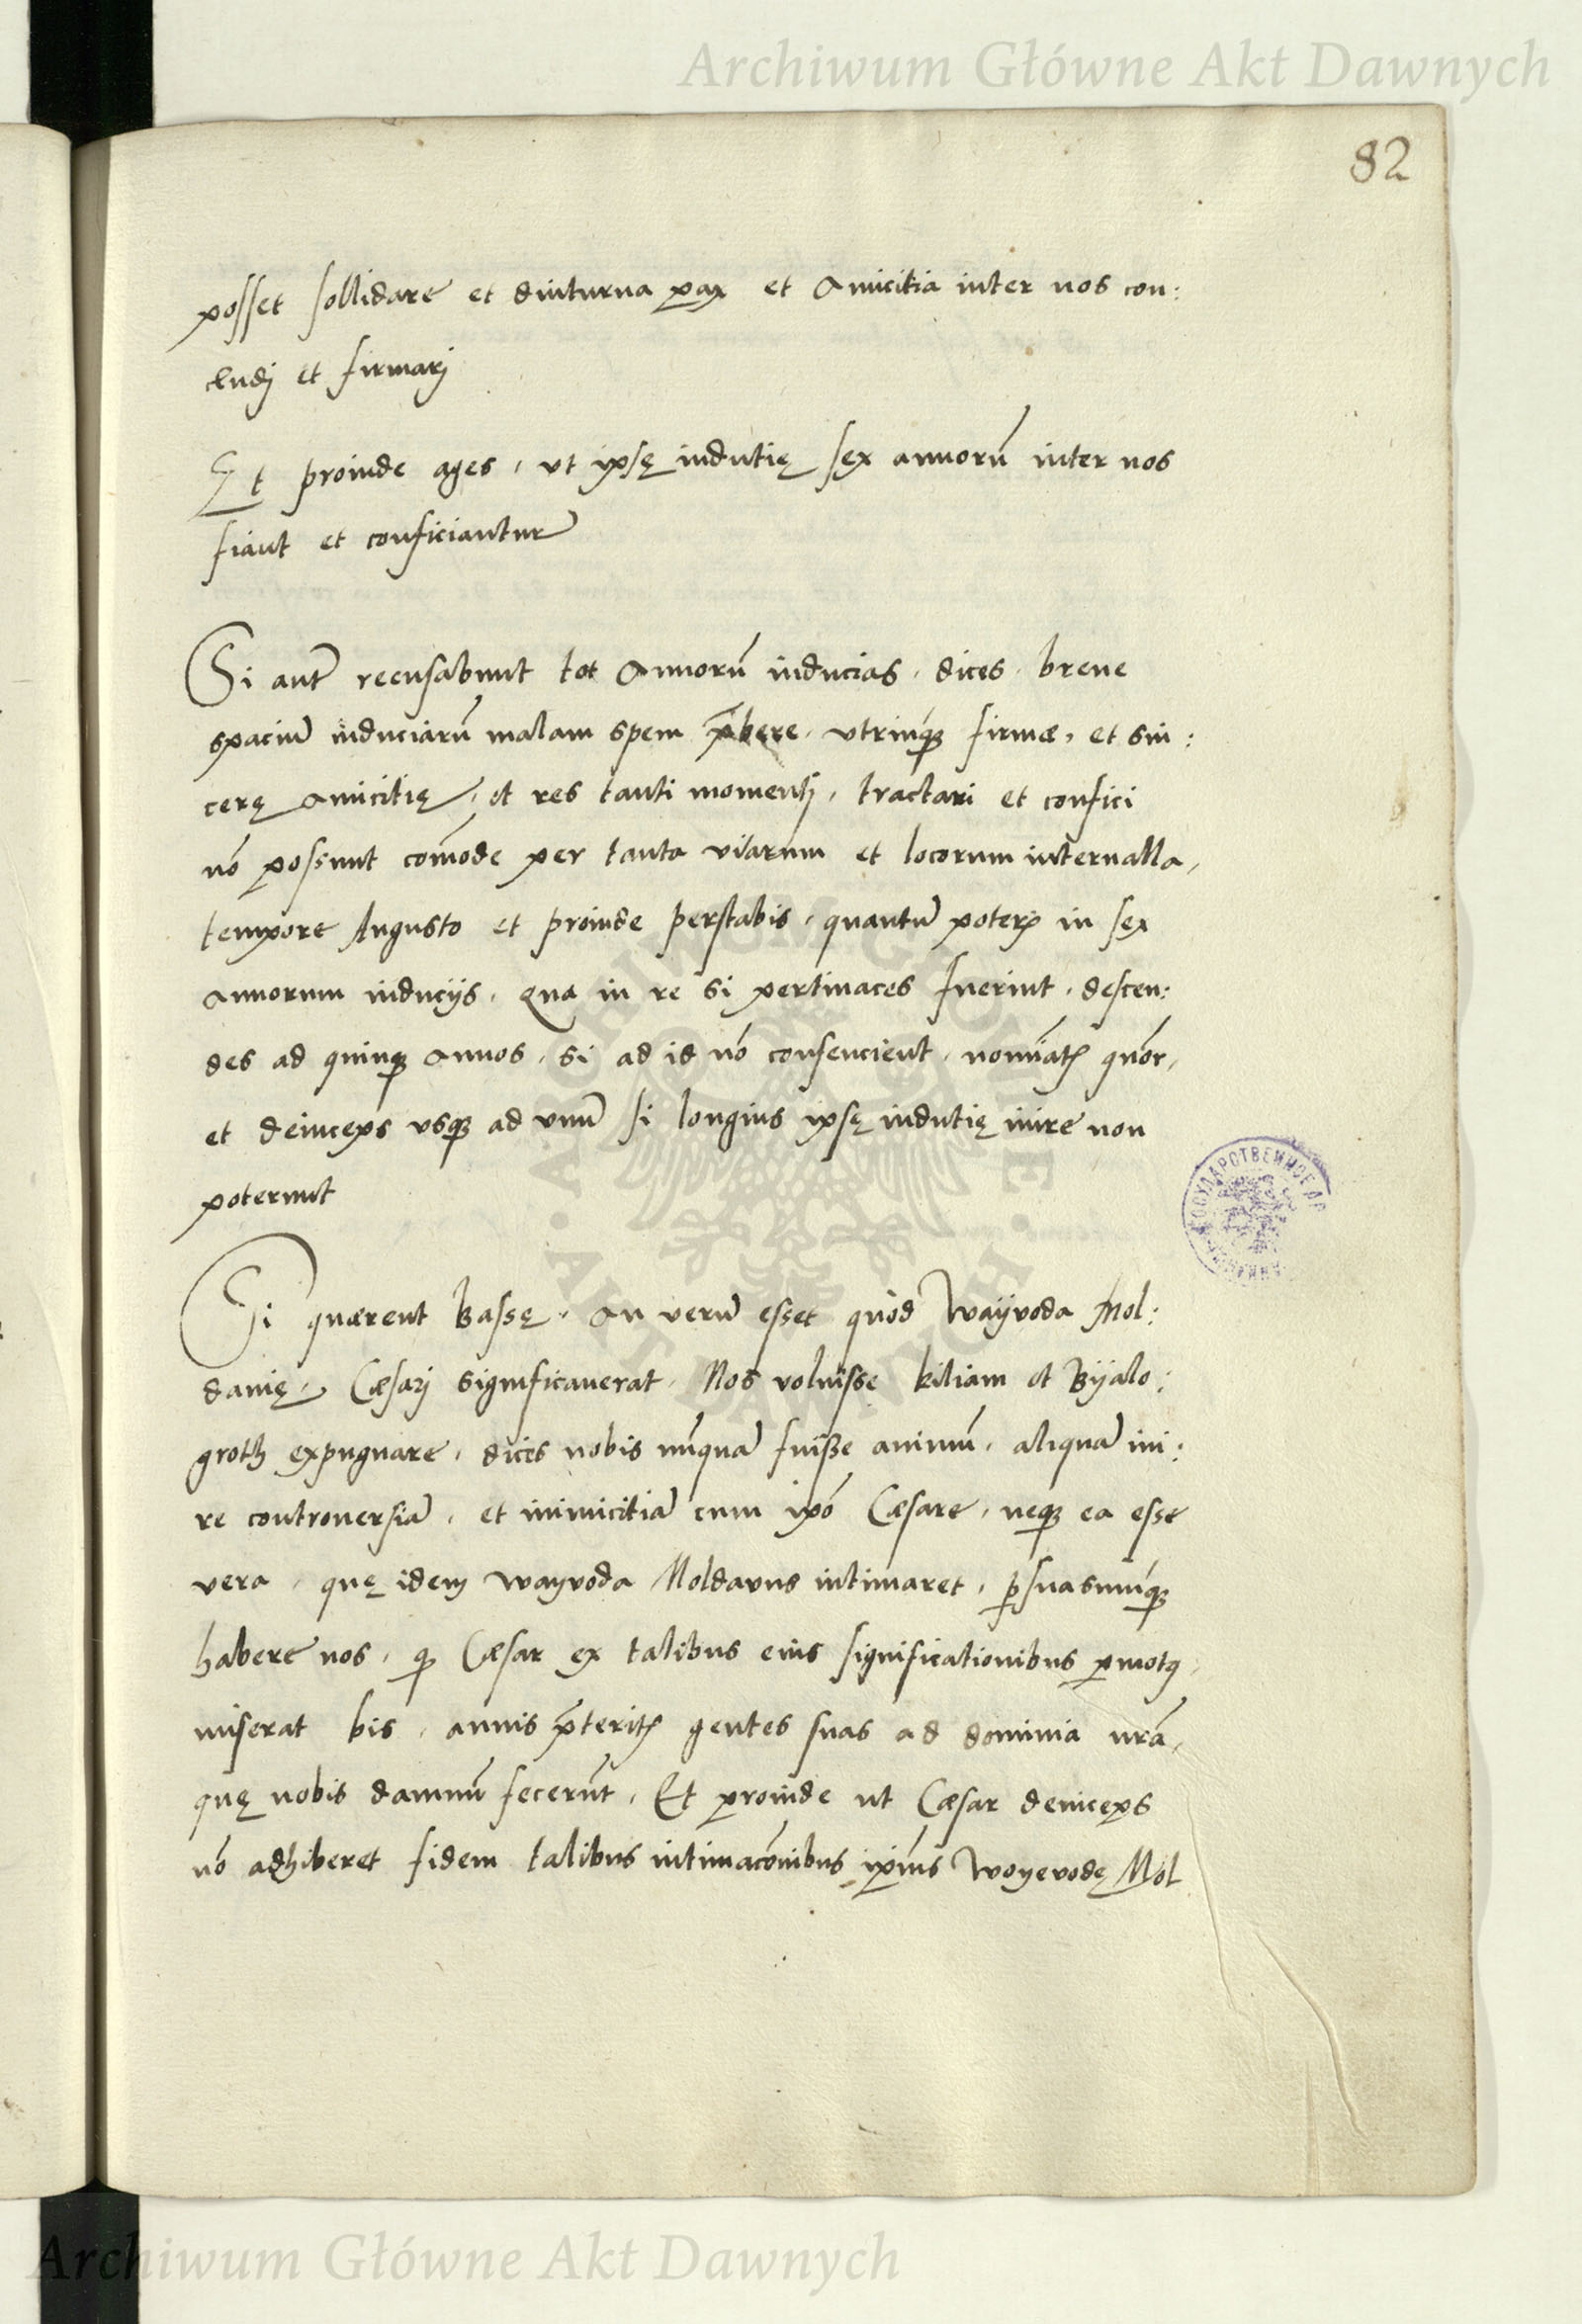 Archiwum Główne Akt Dawnych
82
posset sollidare et diuturna pax et Amicitia inter nos con:
cludj et firmarj
Et proinde ages, vt ipsę indutię sex annorũ inter nos
fiant et conficiantur
Si aut̃ recusabunt tot Annorũ inducias, dices, breue
spaciũ induciarũ malam spem p̃bere, vtrinq́ꝫ firmæ, et sin:
cerę Amicitię, et res tanti momentj, tractari et confici
nõ possunt com̃ode per tanta viarum et locorum interualla,
tempore Angusto et proinde perstabis, quantũ poterꝭ in sex
Annorum inducijs, Qua in re si pertinaces fuerint, descen:
des ad quinqꝫ Annos, si ad id nõ consencient, nomĩatꝭ quõr,
et deinceps vsqꝫ ad vnũ si longius ipsę indutię inire non
poterunt
Si quærent Bassę, An verũ esset quòd Wayvoda Mol:
dauię, Cæsarj significauerat, Nos voluisse kiliam et Bÿalo:
groth expugnare, dices nobis nũquã fuiße animũ, aliquã ini:
re controuersiã, et inimicitiã cum ipõ Cæsare, neqꝫ ea esse
vera, quę idem wayvoda Moldauus intimaret, ꝑsuasumq́ꝫ
habere nos, ꝙ Cæsar ex talibus eius significationibus ꝑmotꝰ,
miserat bis, annis p̃teritꝭ gentes suas ad dominia nrã,
quę nobis damnũ fecerũt, Et proinde ut Cæsar deinceps
nõ adhiberet fidem talibus intimacõnibus ipĩus Woyevodę Mol
ARCHIWUM GŁÓWNE
AKT DAWNYCH
Archiwum Główne Akt Dawnych